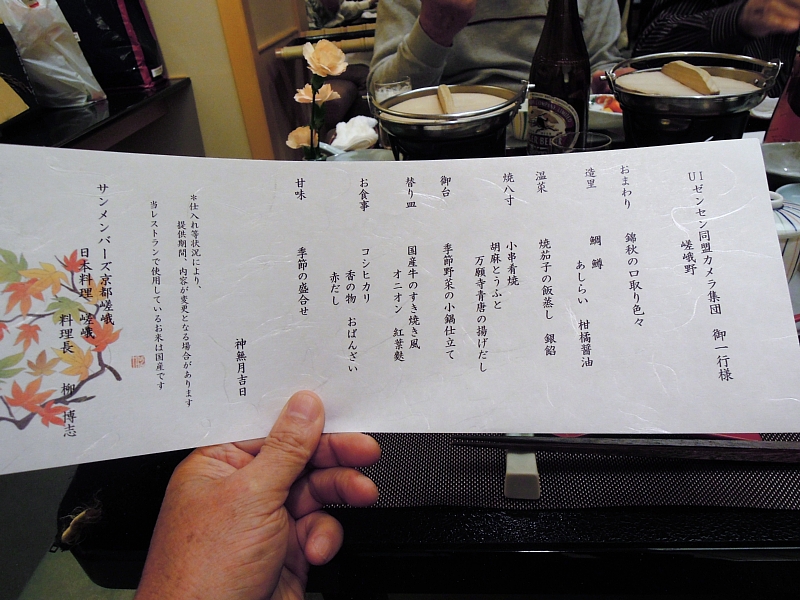 UIゼンセン同盟カメラ集団 御一行様
嵯峨野
おまわり 錦秋の口取り色々
造里 鯛 鱒
あしらい 柑橘醤油
温菜 焼茄子の飯蒸し 銀餡
焼八寸 小串肴焼
胡麻とうふと
万願寺青唐の揚げだし
御台 季節野菜の小鍋仕立て
替り皿 国産牛のすき焼き風
オニオン 紅葉麩
お食事 コシヒカリ
香の物 おばんざい
赤だし
甘味 季節の盛合せ
神無月吉日
*仕入れ等状況により、
提供期間、内容が変更となる場合があります
当レストランで使用しているお米は国産です
サンメンバーズ京都嵯峨
日本料理 嵯峨
料理長 柳 博志